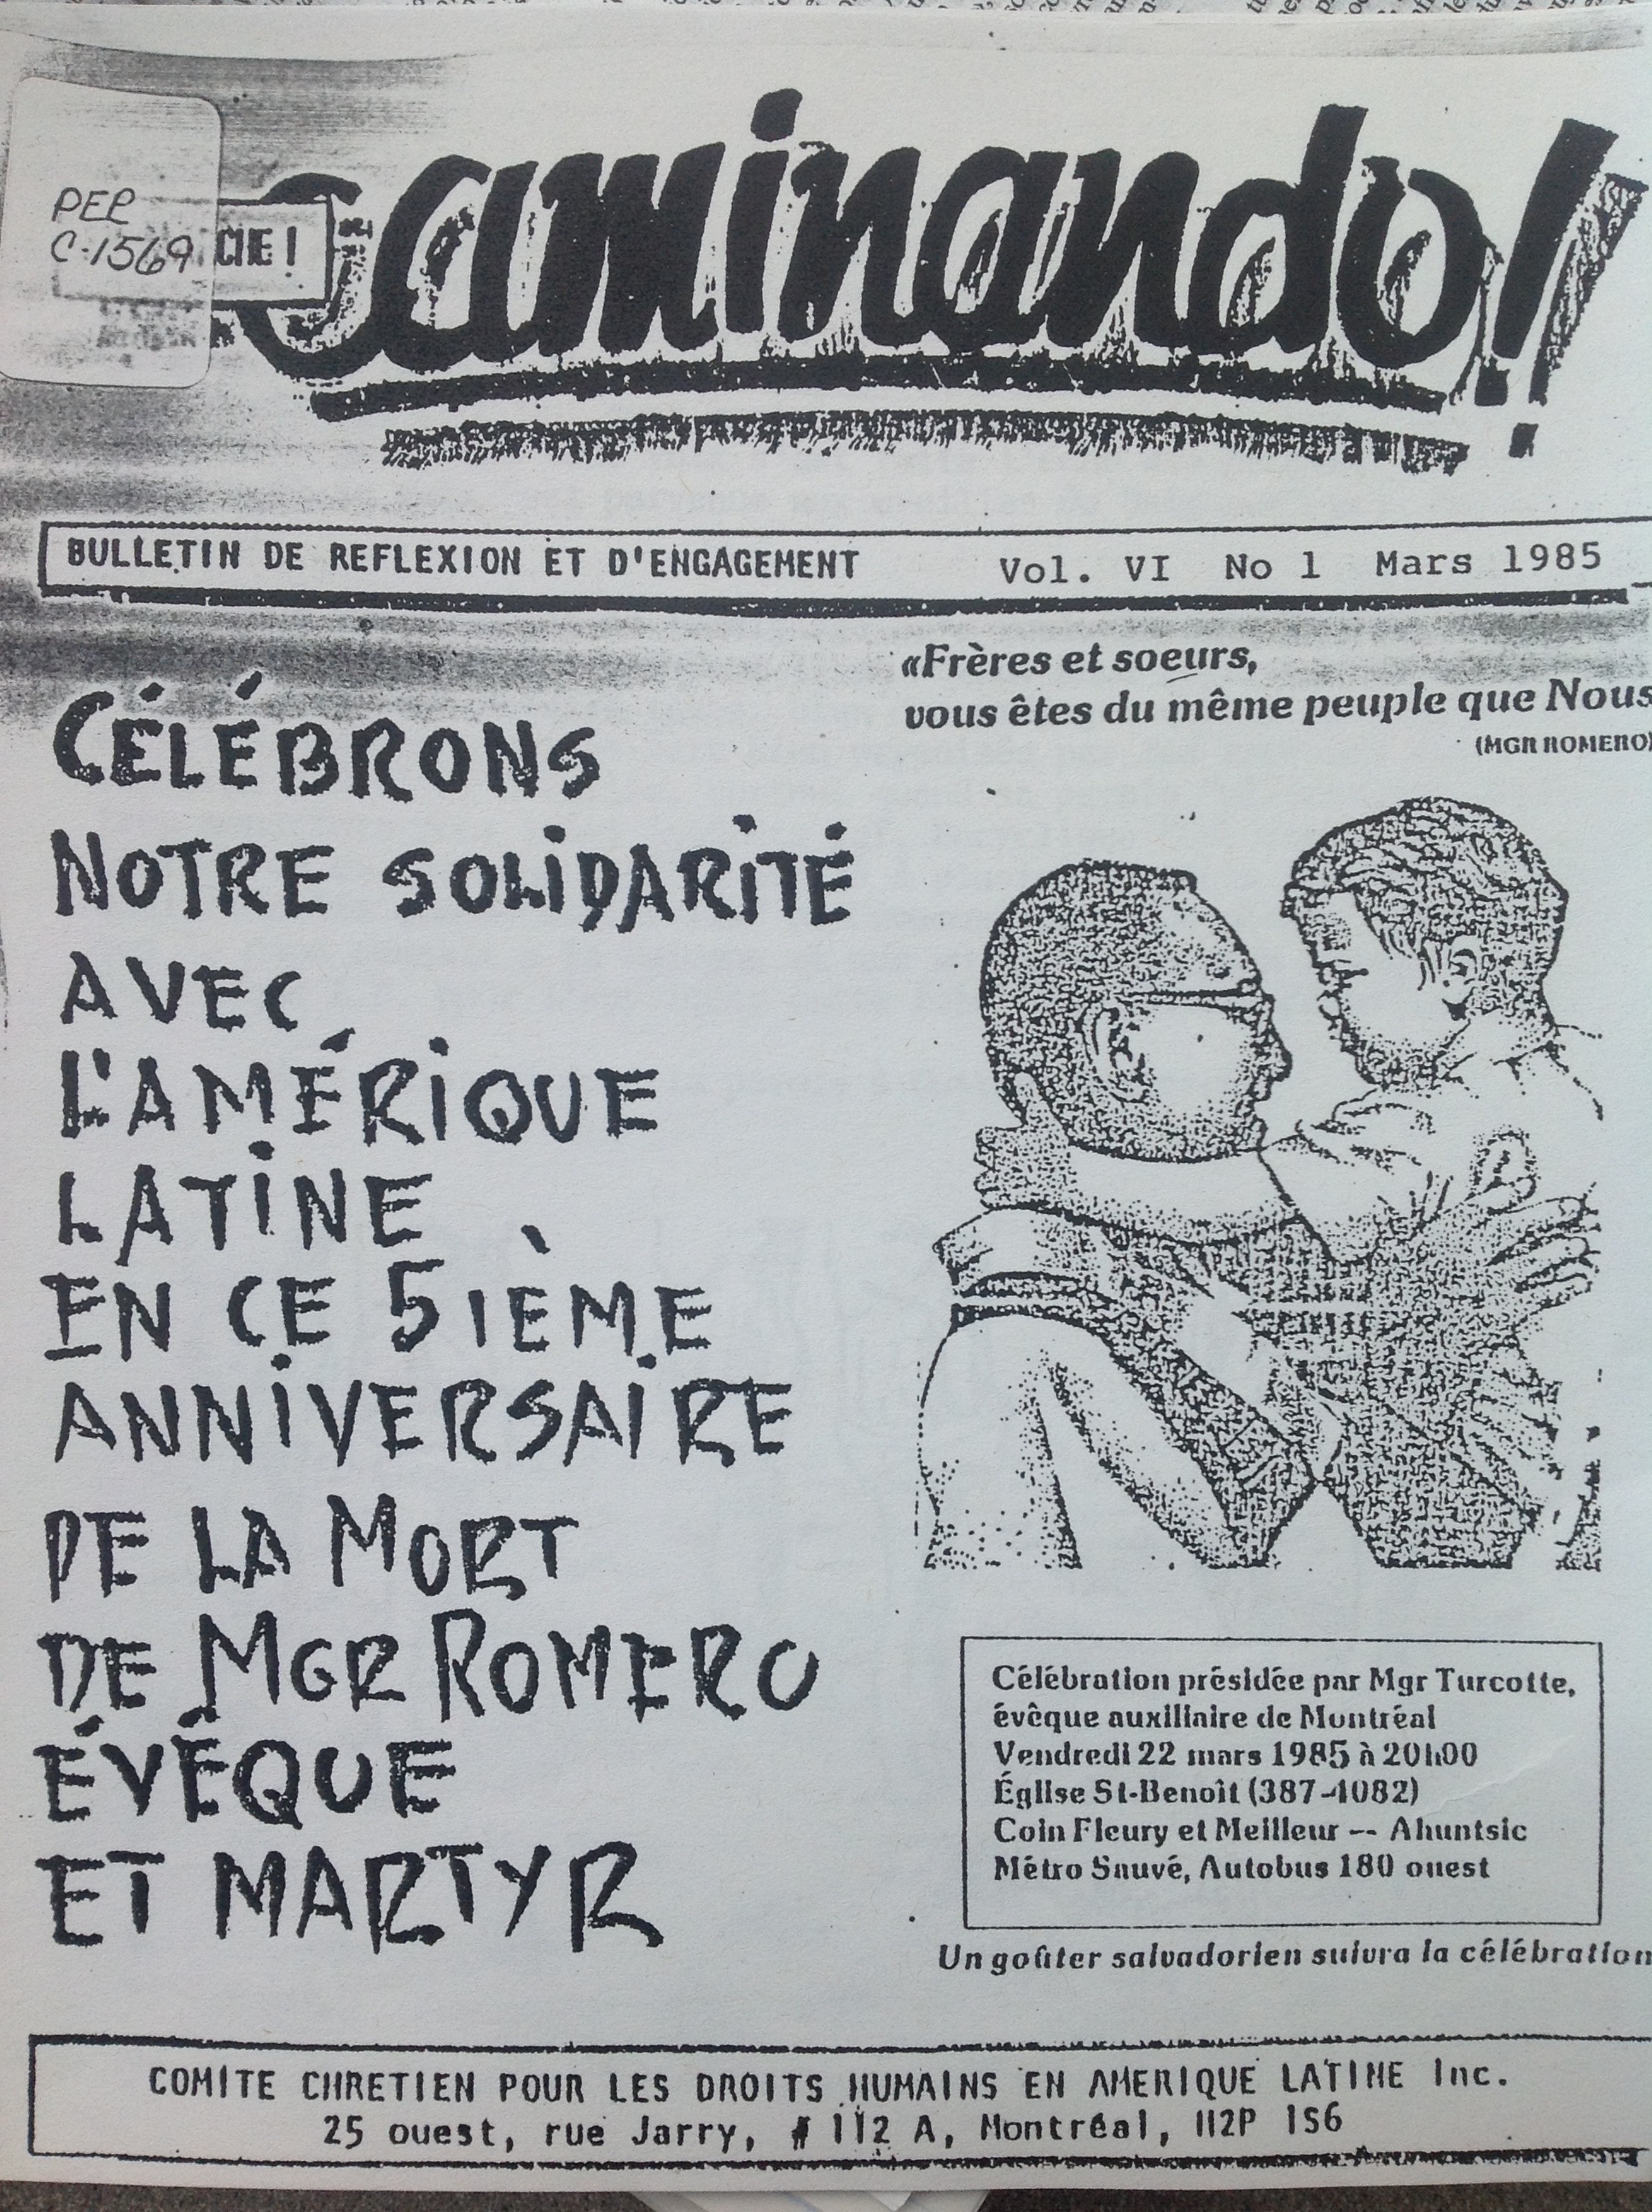 PER
C-1569
CHE !
Caminando!
BULLETIN DE REFLEXION ET D'ENGAGEMENT Vol. VI No 1 Mars 1985
CÉLÉBRONS
NOTRE SOLIDARITÉ
AVEC
L'AMÉRIQUE
LATINE
EN CE 5IÈME
ANNIVERSAIRE
DE LA MORT
DE MGR ROMERO
ÉVÊQUE
ET MARTYR
«Frères et soeurs,
vous êtes du même peuple que Nous
(MGR ROMERO)
Célébration présidée par Mgr Turcotte,
évêque auxiliaire de Montréal
Vendredi 22 mars 1985 à 20h00
Église St-Benoît (387-4082)
Coin Fleury et Meilleur -- Ahuntsic
Métro Sauvé, Autobus 180 ouest
Un goûter salvadorien suivra la célébration
COMITE CHRETIEN POUR LES DROITS HUMAINS EN AMERIQUE LATINE Inc.
25 ouest, rue Jarry, # 112 A, Montréal, H2P 1S6